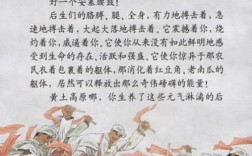 好一个安塞腰鼓!
后生们的胳膊,腿,全身,有力地搏击着,急
速地搏击着,大起大落地搏击着。它震撼着你,烧
灼着你,威逼着你,它使你从来没有如此鲜明地感
受到生命的存在,活跃和强盛。它使你惊异于那农
民衣着包裹着的躯体,那消化着红豆角,老南瓜的
躯体,居然可以释放出那么奇伟磅礴的能量!
黄土高原哪,你生养了这些元气淋漓的后